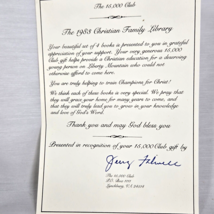 The 15,000 Club
The 1988 Christian Family Library
Your beautiful set of 4 books is presented to you in grateful
appreciation of your support. Your very generous 15,000
Club gift helps provide a Christian education for a deserving
young person on Liberty Mountain who could not
otherwise afford to come here.
You are truly helping to train Champions for Christ!
We think each of these books is very special. We pray that
they will grace your home for many years to come, and
that they will truly lead you to grow in your knowledge
and love of God's Word.
Thank you and may God bless you
Presented in recognition of your 15,000 Club gift by
Jerry Falwell
The 15,000 Club
Lynchburg, VA 24514